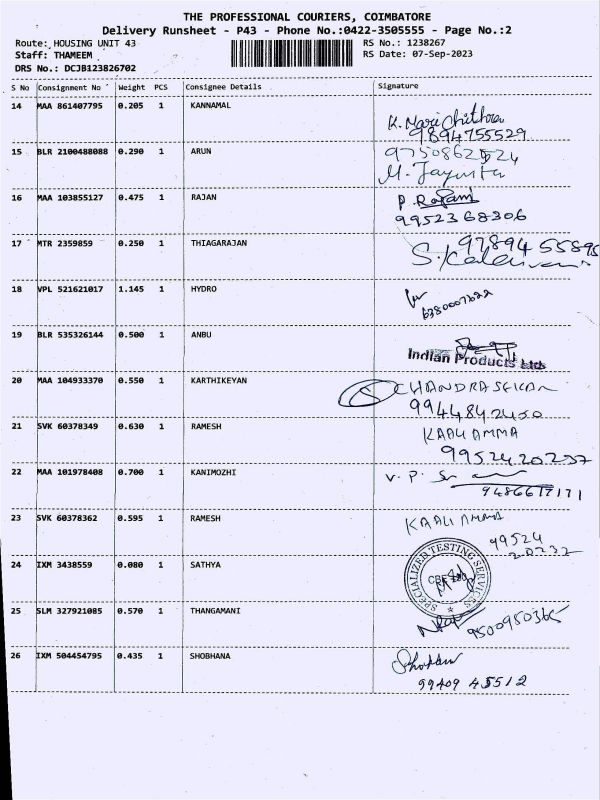 THE PROFESSIONAL COURIERS, COIMBATORE
Delivery Runsheet - P43 - Phone No.:0422-3505555 - Page No.:2
Route: HOUSING UNIT 43 RS No.: 1238267
Staff: THAMEEM RS Date: 07-Sep-2023
DRS No.: DCJB123826702
S No Consignment No Weight PCS Consignee Details Signature
14 MAA 861407795 0.205 1 KANNAMAL
K. Mari Chithra
9894755529
15 BLR 2100488088 0.290 1 ARUN
M. Jayasta
16 MAA 103855127 0.475 1 RAJAN P. Rajani
9952368306
17 MTR 2359859 0.250 1 THIAGARAJAN 9789455895
18 VPL 521621017 1.145 1 HYDRO
6380007622
19 BLR 535326144 0.500 1 ANBU
Indian Products Ltd
20 MAA 104933370 0.550 1 KARTHIKEYAN CHANDRASEKAR
9944842450
21 SVK 60378349 0.630 1 RAMESH KAALIAMMA
9952420237
22 MAA 101978408 0.700 1 KANIMOZHI V. P.
9486617171
23 SVK 60378362 0.595 1 RAMESH KAALIAMMA
99524
20232
24 IXM 3438559 0.080 1 SATHYA SPECIALIZED TESTING SERVICES
25 SLM 327921085 0.570 1 THANGAMANI
9500950365
26 IXM 504454795 0.435 1 SHOBHANA Shobhan
99409 45512